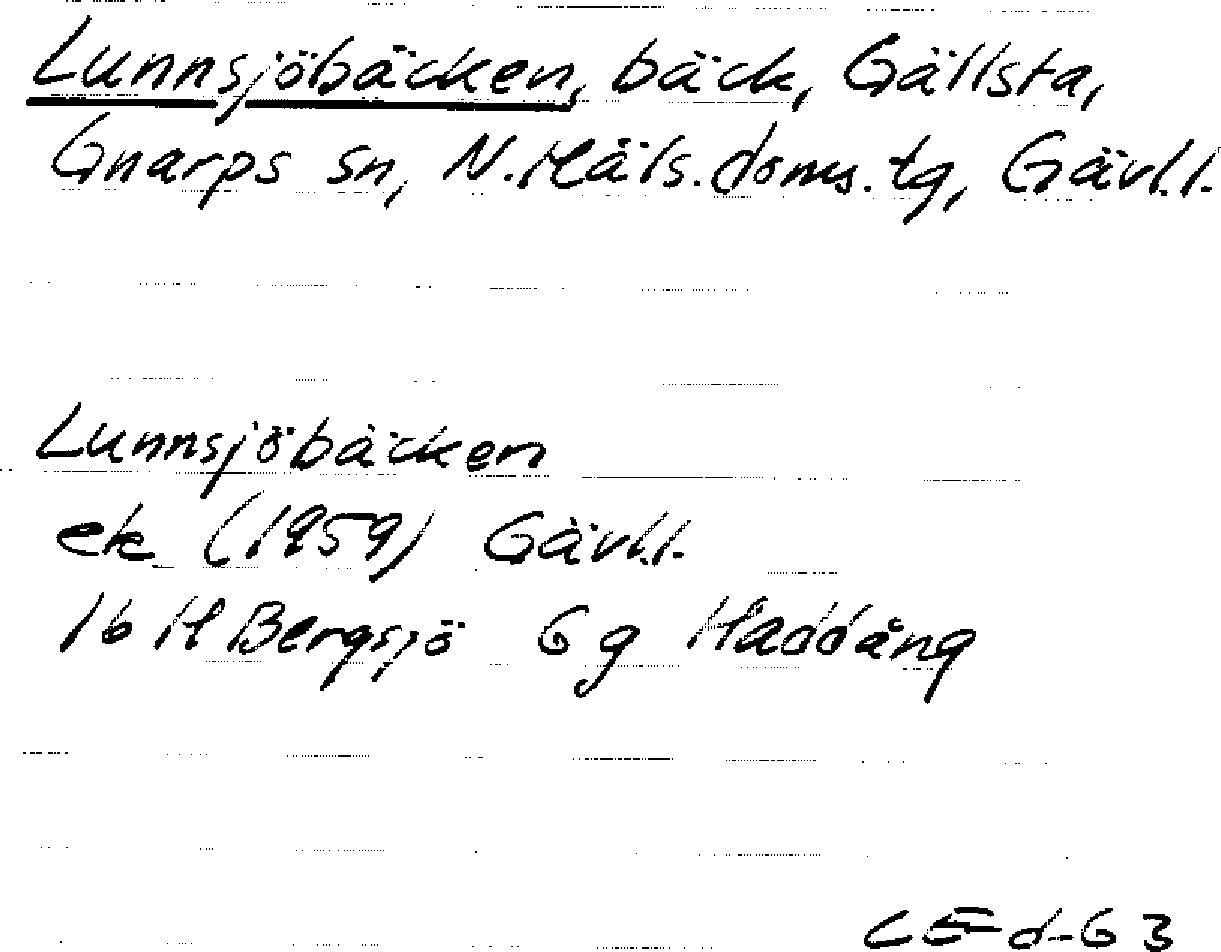 Lunnsjöbäcken, bäck, Gällsta,
Gnarps sn, N.Häls.doms.tg, Gävl.l.
Lunnsjöbäcken
ek (1959) Gävl.l.
16 H Bergsjö 6 g Haddäng
CE d-63